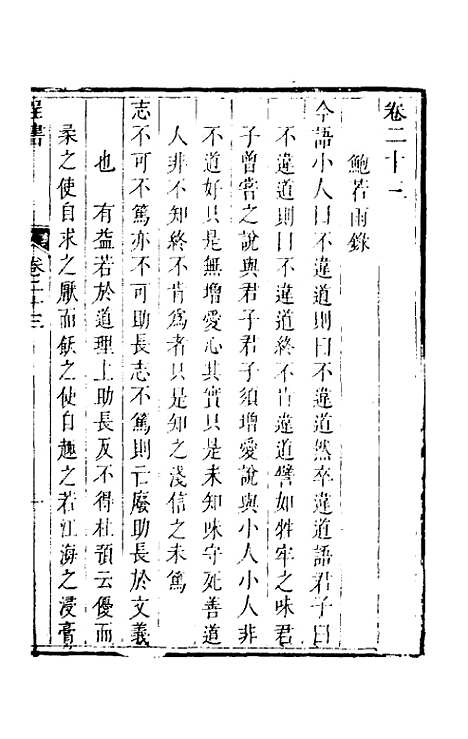 卷二十三
鮑若雨錄
今語小人曰不違道則曰不違道然卒違道語君子曰
不違道則曰不違道終不肯違道譬如牲牢之味君
子曾嘗之說與君子君子須增愛說與小人小人非
不道好只是無增愛心其實只是未知味守死善道
人非不知終不肯為者只是知之淺信之未篤
志不可不篤亦不可助長志不篤則亡廢助長於文義
也 有益若於道理上助長反不得杜預云優而
柔之使自求之厭而飫之使自趣之若江海之浸膏
程書
卷二十三
一